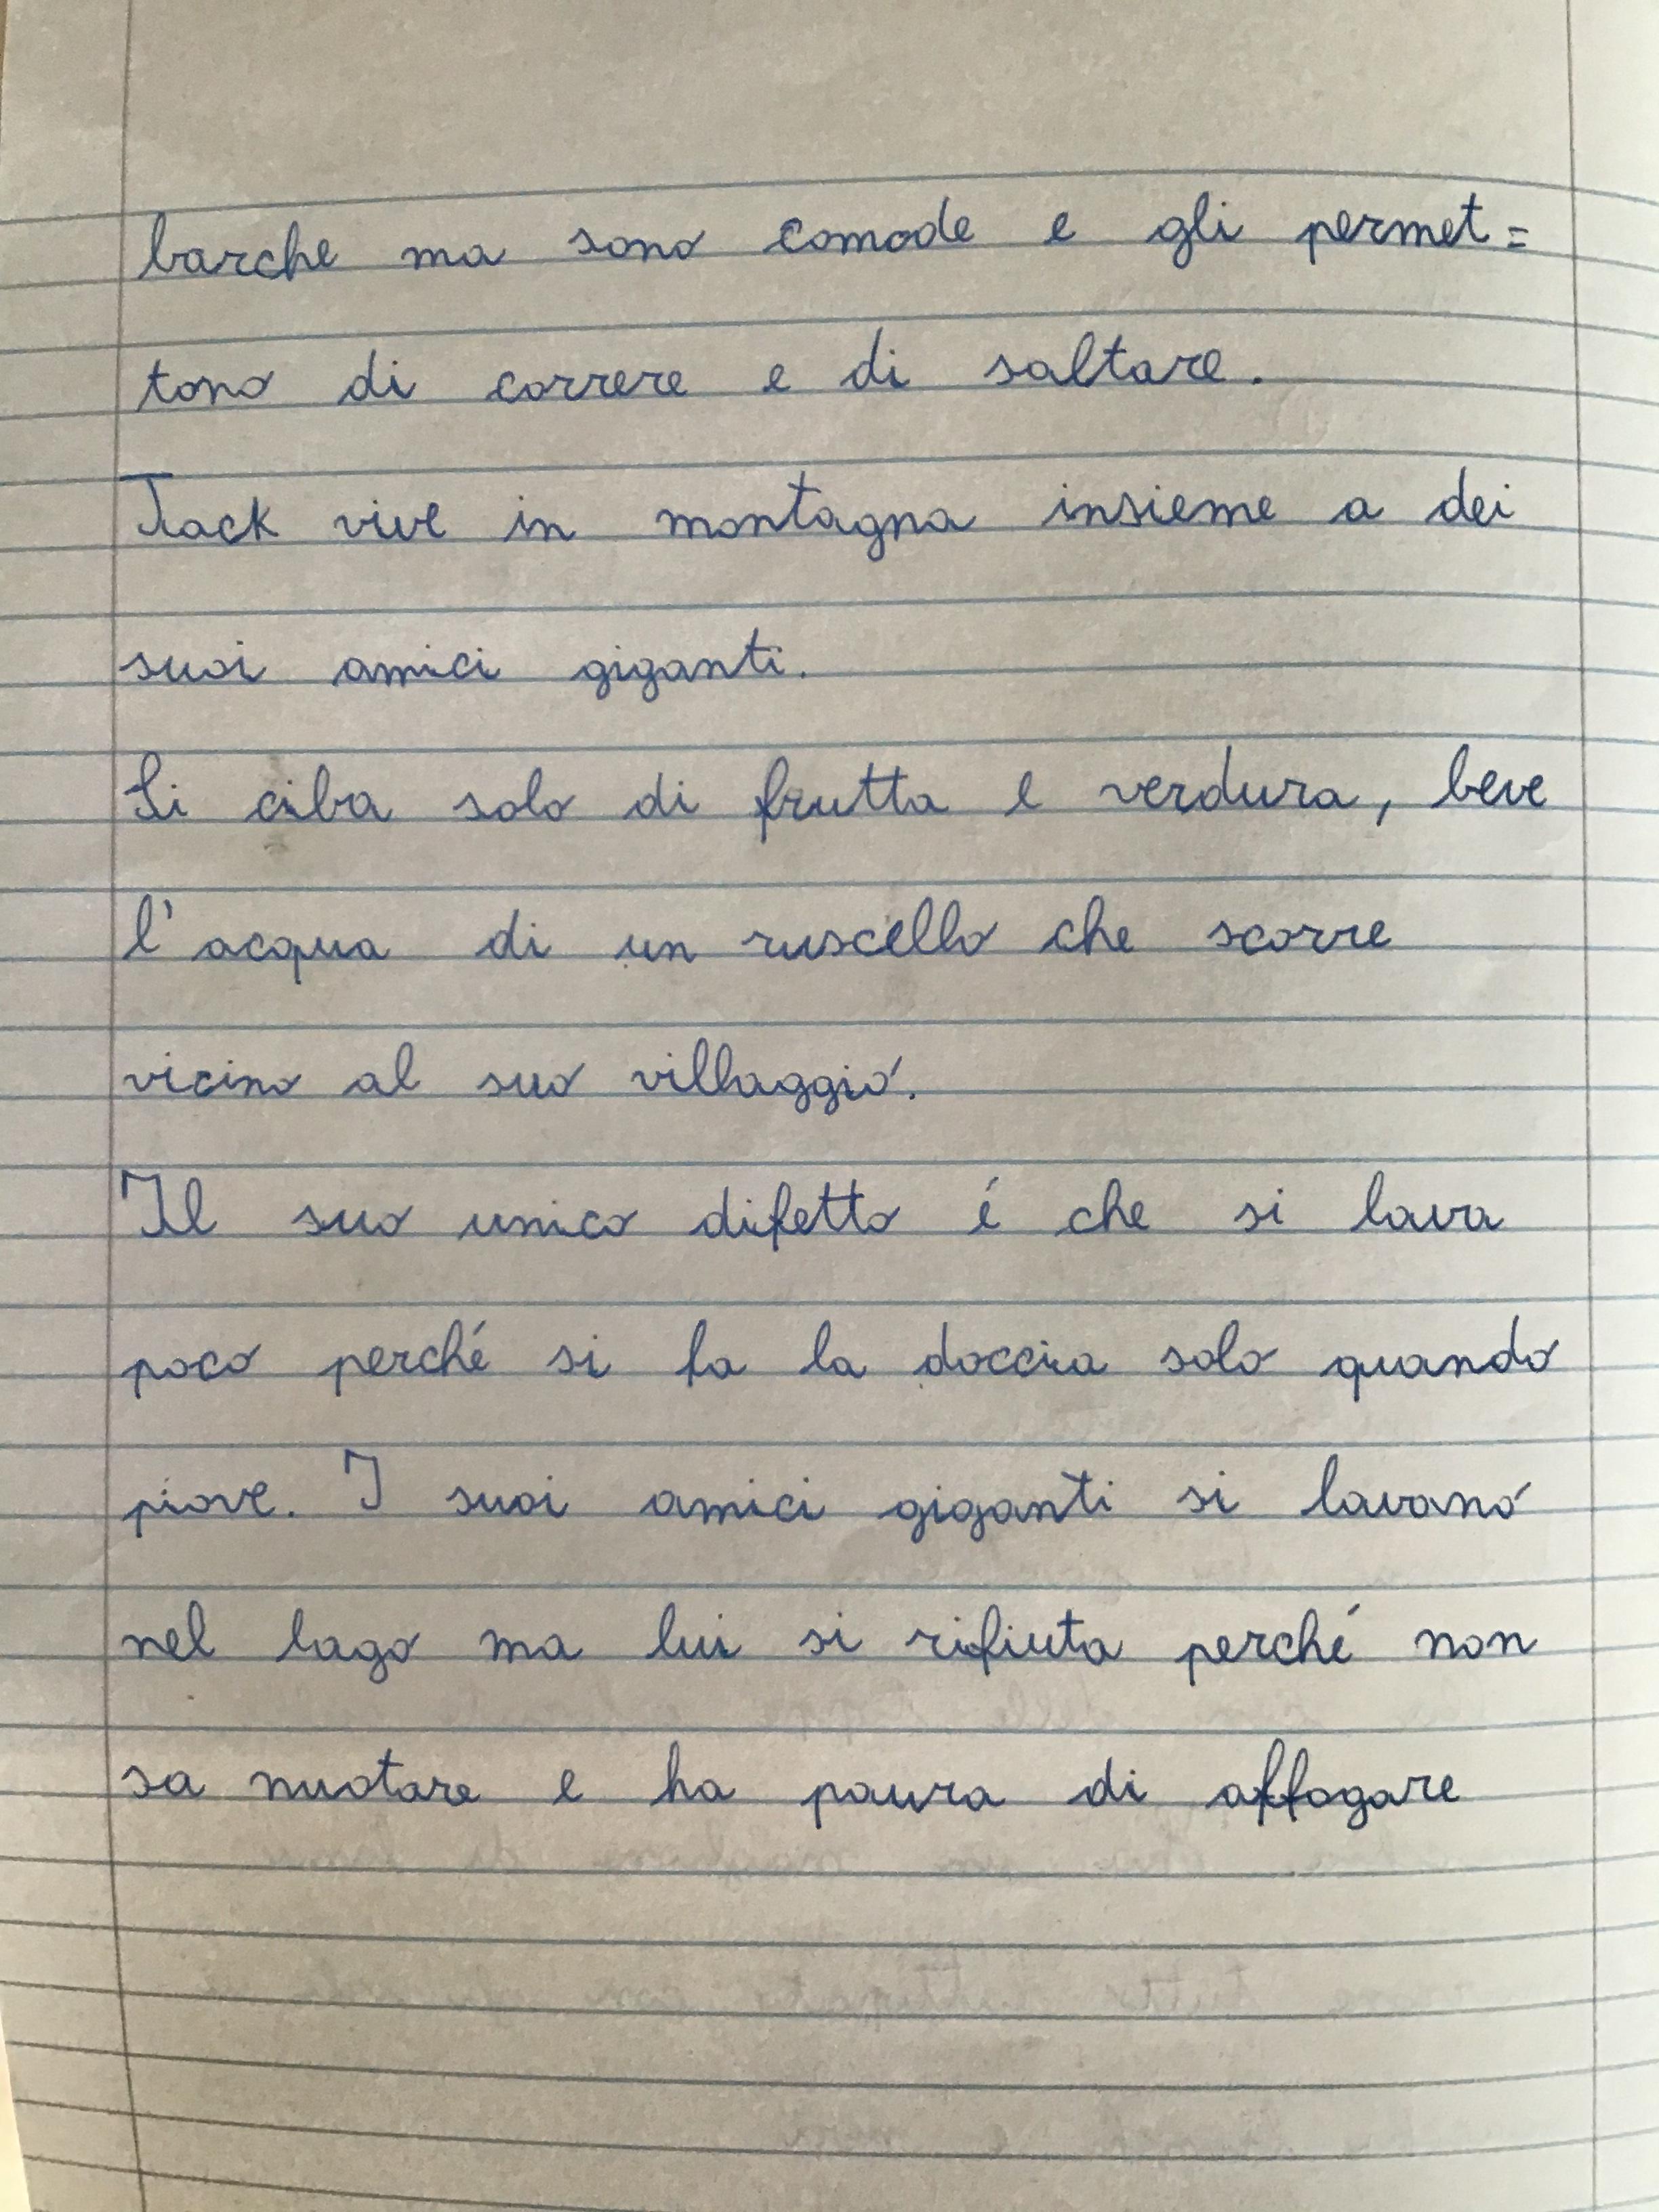 barche ma sono comode e gli permet=
tono di correre e di saltare.
Jack vive in montagna insieme a dei
suoi amici giganti.
Si ciba solo di frutta e verdura, beve
l'acqua di un ruscello che scorre
vicino al suo villaggio.
Il suo unico difetto é che si lava
poco perché si fa la doccia solo quando
piove. I suoi amici giganti si lavano
nel lago ma lui si rifiuta perché non
sa nuotare e ha paura di affogare